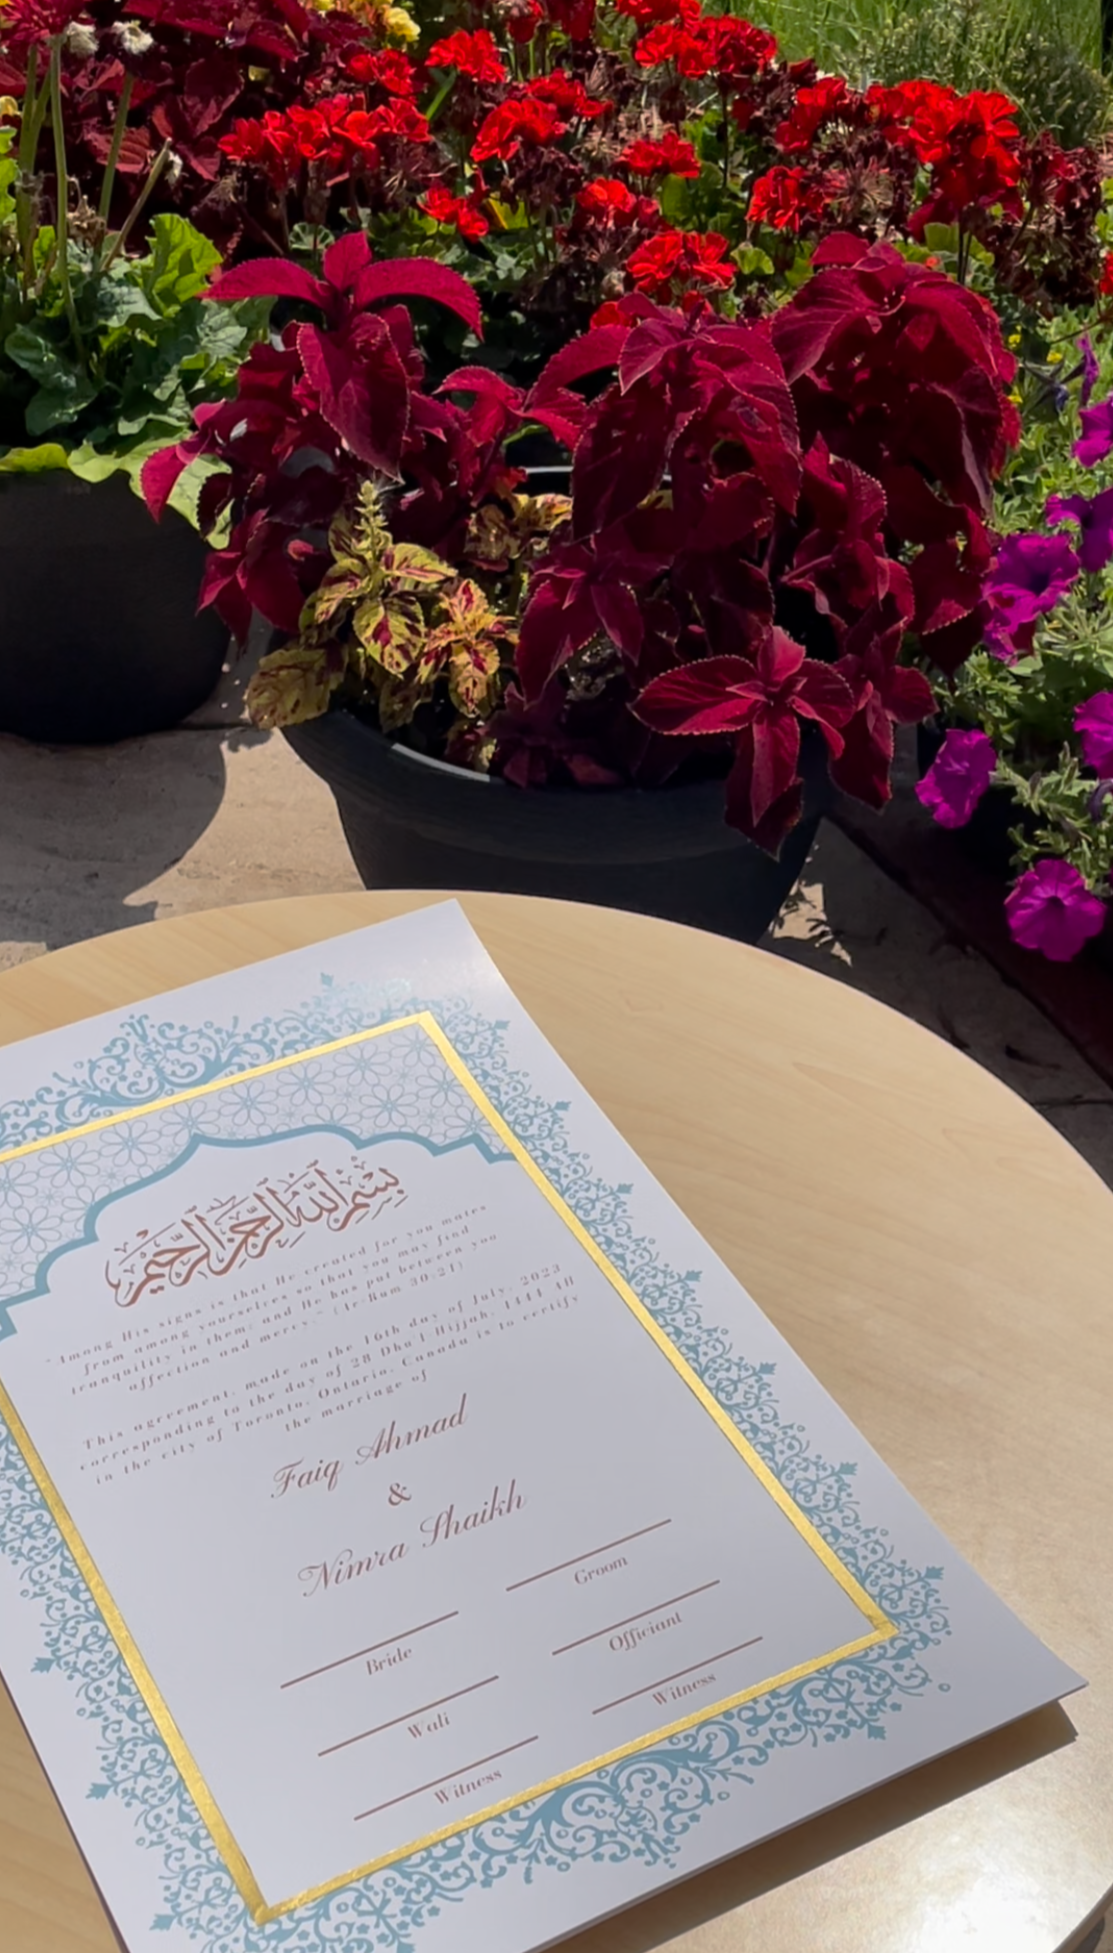 بسم الله الرحمن الرحيم
"Among His signs is that He created for you mates
from among yourselves so that you may find
tranquility in them; and He has put between you
affection and mercy." (Ar-Rum 30:21)
This agreement, made on the 16th day of July, 2023
corresponding to the day of 28 Dhu l-Hijjah, 1444 AH
in the city of Toronto, Ontario, Canada is to certify
the marriage of
Faiq Ahmad
&
Nimra Shaikh
Groom
Bride
Officiant
Wali
Witness
Witness